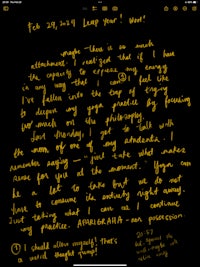 Feb 29, 2024 Leap year! Woot!
maybe - there is so much
attachment. I realized that if I have
the capacity to express my energy
in any way that I can ① I feel like
I've fallen into the trap of trying
to deepen my yoga practice by focusing
too much on the philosophy.
Last Monday, I got to talk with
the mom of one of my students. I
remember saying - "just take what makes
sense for you at the moment." Yoga can
be a lot to take but we do not
have to consume its entirety right away.
Just taking what I can as I continue
my practice. APARIGRAHA - non possession.
① I should allow myself! That's
a weird thought jump!
20:57